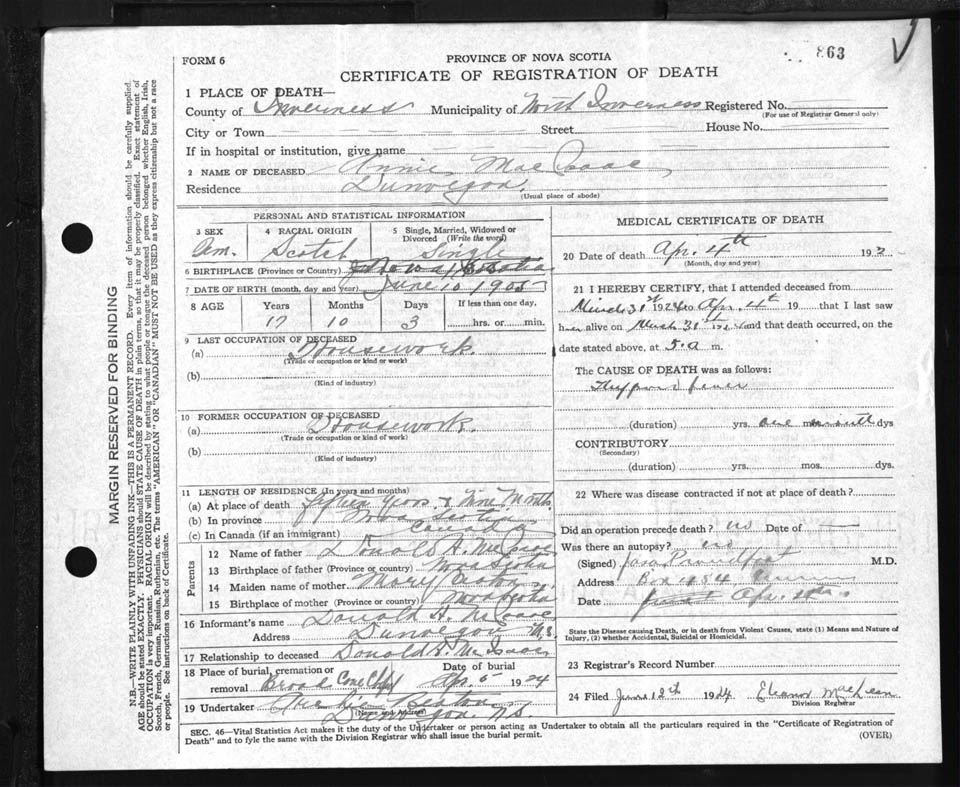 863
FORM 6
PROVINCE OF NOVA SCOTIA
CERTIFICATE OF REGISTRATION OF DEATH
1 PLACE OF DEATH—
County of Inverness Municipality of North Inverness Registered No.
(For use of Registrar General only)
City or Town Street House No.
If in hospital or institution, give name
2 NAME OF DECEASED Annie Mac Isaac
Residence Dunvegan
(Usual place of abode)
PERSONAL AND STATISTICAL INFORMATION
3 SEX 4 RACIAL ORIGIN 5 Single, Married, Widowed or Divorced (Write the word)
Scotch Single
6 BIRTHPLACE (Province or Country) Nova Scotia
7 DATE OF BIRTH (month, day and year) June 10 1905
8 AGE Years Months Days If less than one day,
17 10 3 hrs. or min.
9 LAST OCCUPATION OF DECEASED
(a) Housework.
(Trade or occupation or kind or work)
(b)
(Kind of industry)
10 FORMER OCCUPATION OF DECEASED
(a) Housework.
(Trade or occupation or kind of work)
(b)
(Kind of industry)
11 LENGTH OF RESIDENCE (In years and months)
(a) At place of death
(b) In province Nova Scotia
(c) In Canada (if an immigrant) Canada
Parents
12 Name of father Donald A. McIsaac
13 Birthplace of father (Province or country) Nova Scotia
14 Maiden name of mother Mary
15 Birthplace of mother (Province or country) Nova Scotia
16 Informant's name Donald A. McIsaac
Address Dunvegan N.S.
17 Relationship to deceased Donald A. McIsaac
18 Place of burial, cremation or removal Broad Cove Chpl Date of burial Apr. 5 1924
19 Undertaker Beaton
Dunvegan, N.S.
MEDICAL CERTIFICATE OF DEATH
20 Date of death Apr. 4th 192
(Month, day and year)
21 I HEREBY CERTIFY, that I attended deceased from
March 31st 1924 to Apr. 4th 19 that I last saw
her alive on March 31st 1924 and that death occurred, on
date stated above, at 5.a m.
The CAUSE OF DEATH was as follows:
fever
(duration) yrs. one month dys
CONTRIBUTORY
(Secondary)
(duration) yrs. mos. dys.
22 Where was disease contracted if not at place of death?
Did an operation precede death? no Date of
Was there an autopsy? no
(Signed) Proudfoot M.D.
Address Box
Date Apr.
State the Disease causing Death, or in death from Violent Causes, state (1) Means and Nature of Injury, (2) whether Accidental, Suicidal or Homicidal.
23 Registrar's Record Number
24 Filed June 12th 1924 Eleanor MacLean
Division Registrar
SEC. 46—Vital Statistics Act makes it the duty of the Undertaker or person acting as Undertaker to obtain all the particulars required in the "Certificate of Registration of
Death" and to fyle the same with the Division Registrar who shall issue the burial permit. (OVER)
MARGIN RESERVED FOR BINDING
N.B.—WRITE PLAINLY WITH UNFADING INK—THIS IS A PERMANENT RECORD. Every item of information should be carefully supplied.
AGE should be stated EXACTLY. PHYSICIANS should STATE CAUSE OF DEATH in plain terms, so that it may be properly classified. Exact statement of
OCCUPATION is very important. RACIAL ORIGIN will be described by stating to what people or tongue the deceased person belonged whether English, Irish,
Scotch, French, German, Russian, Ruthenian, etc. The terms "AMERICAN" OR "CANADIAN" MUST NOT BE USED as they express citizenship but not a race
or people. See instructions on back of Certificate.